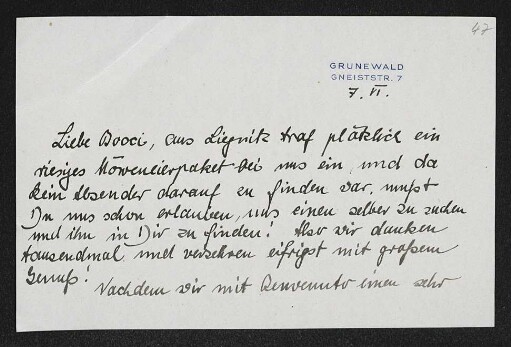 47
GRUNEWALD
GNEISTSTR. 7
7. VI.
Liebe Dooci, aus Liegnitz traf plötzlich ein
riesiges Möweneierpaket bei uns ein, und da
kein Absender darauf zu finden war, mußt
Du uns schon erlauben, uns einen selber zu suchen
und ihn in Dir zu finden! Also wir danken
tausendmal und verzehren eifrigst mit großem
Genuß!
Nachdem wir mit Benvenuto einen sehr